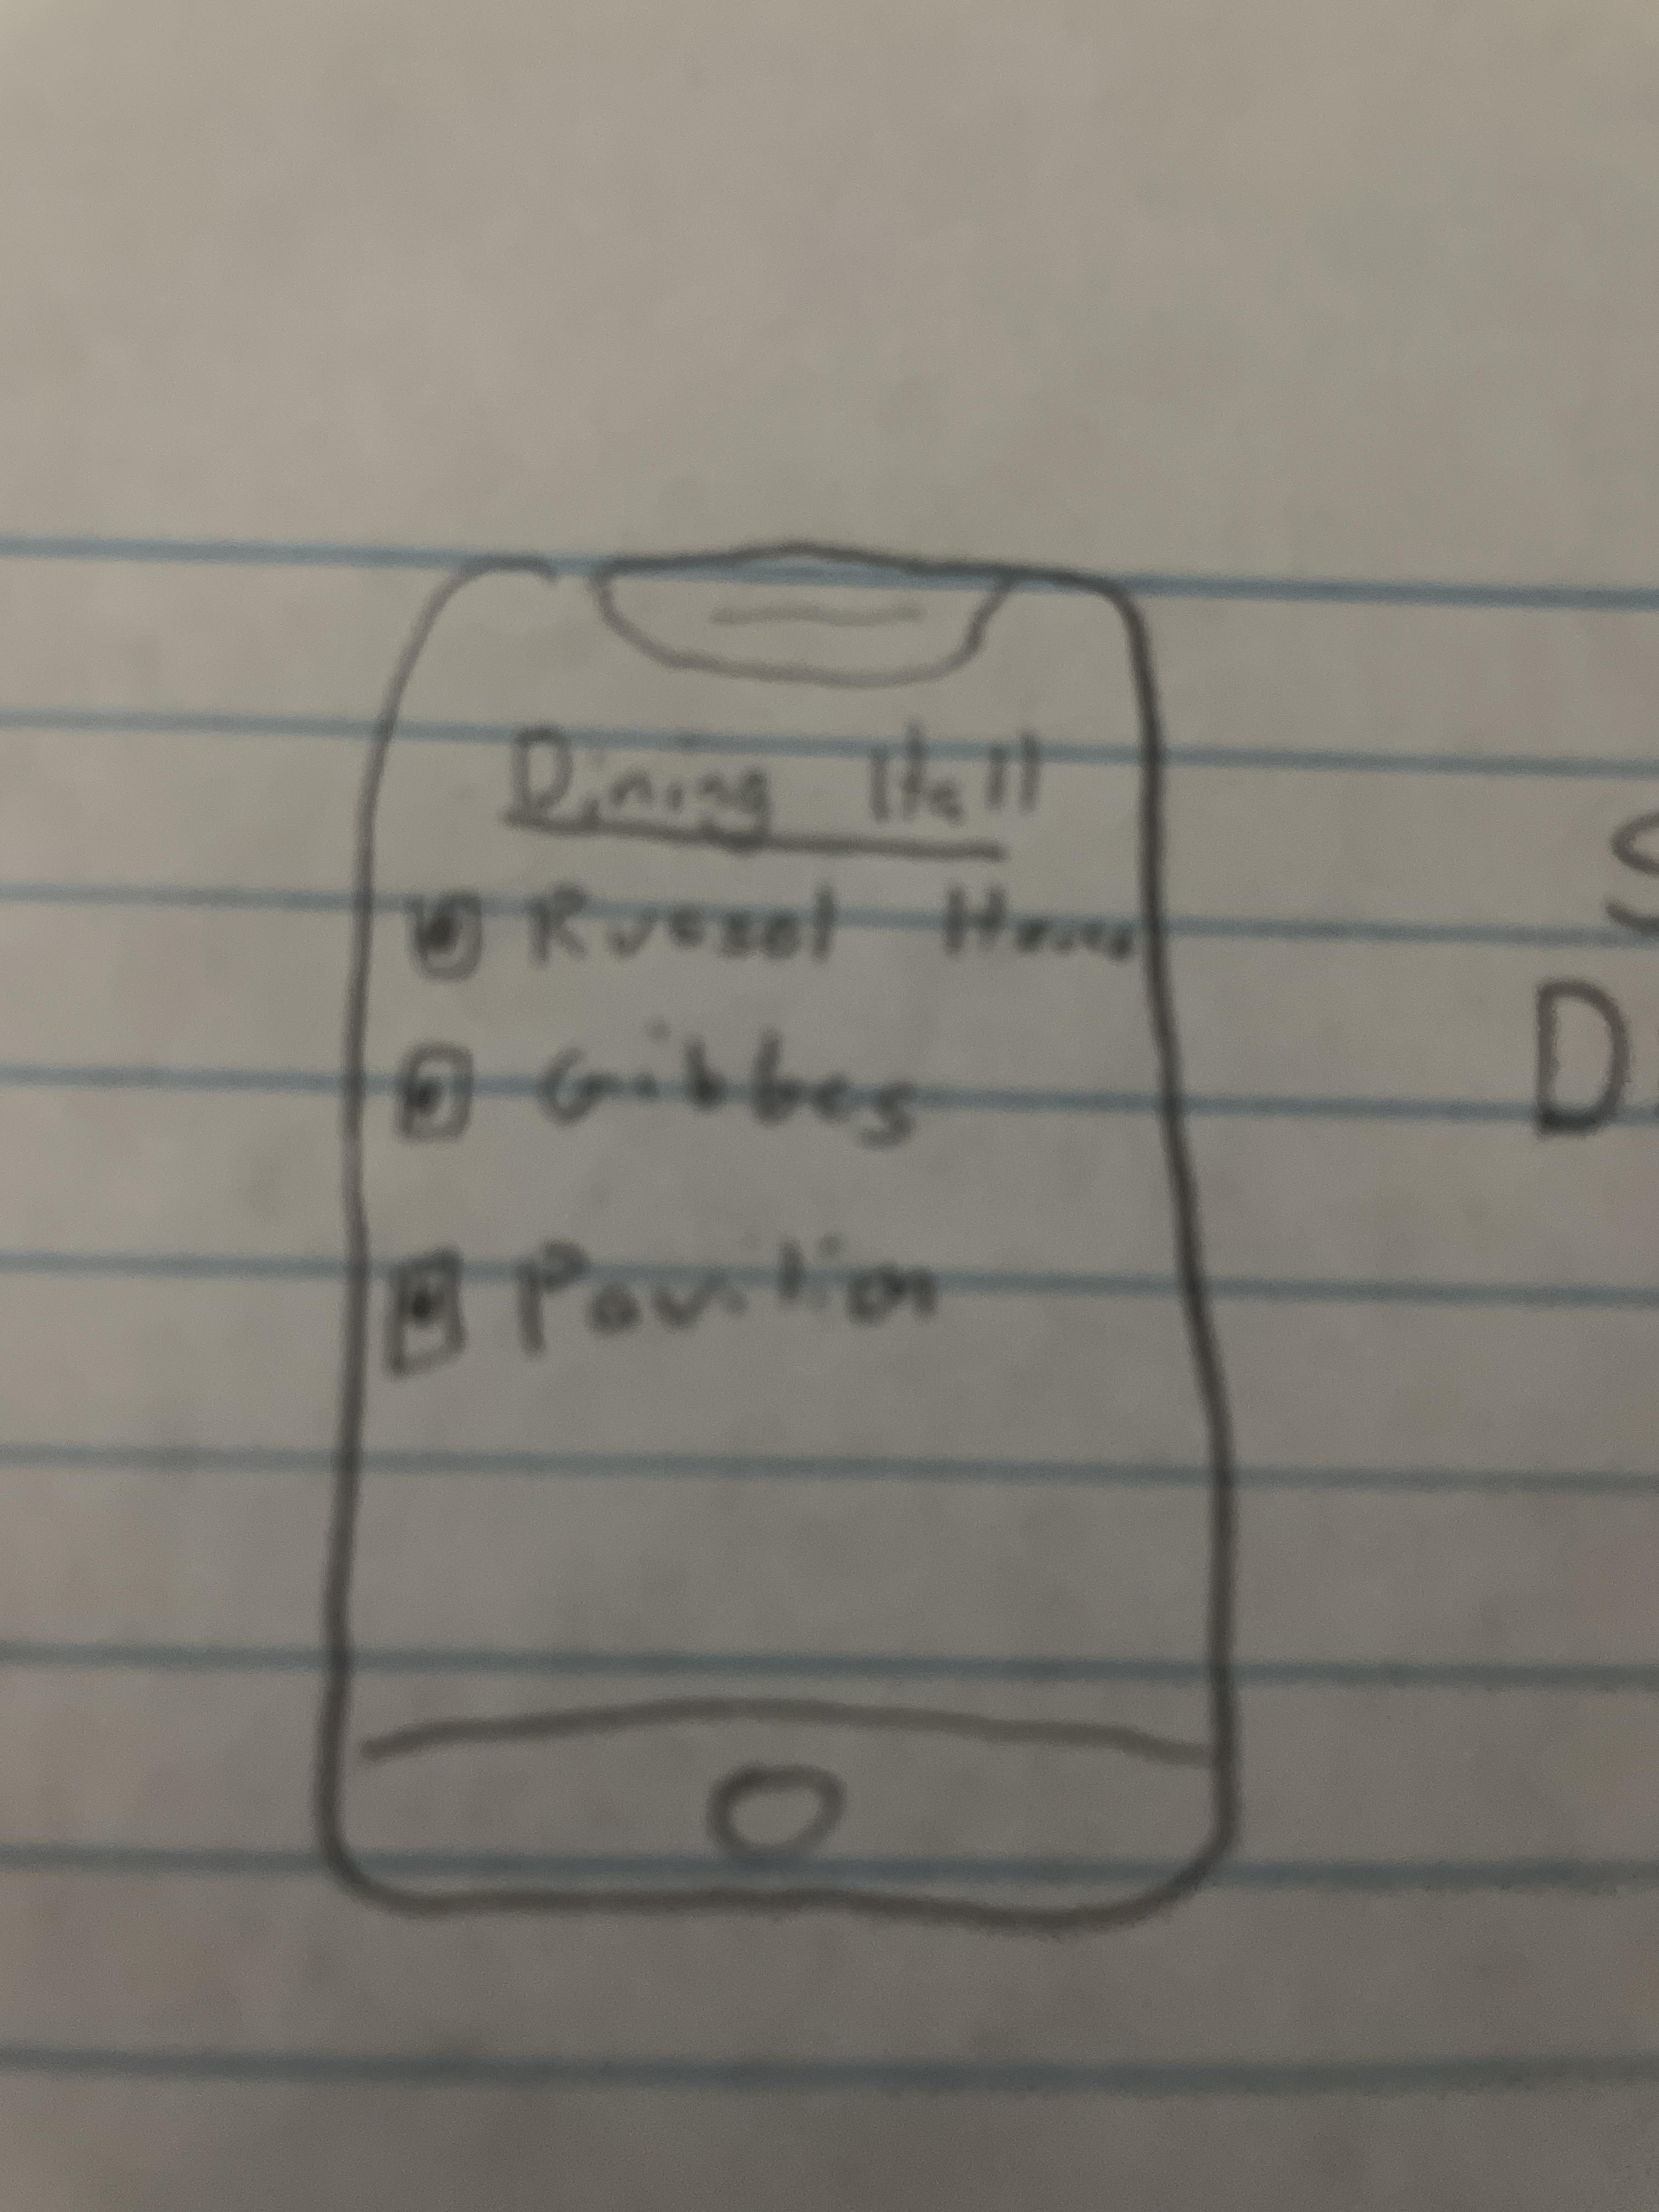 Dining Hall
Russel House
Gibbes
Pavilion
S
D